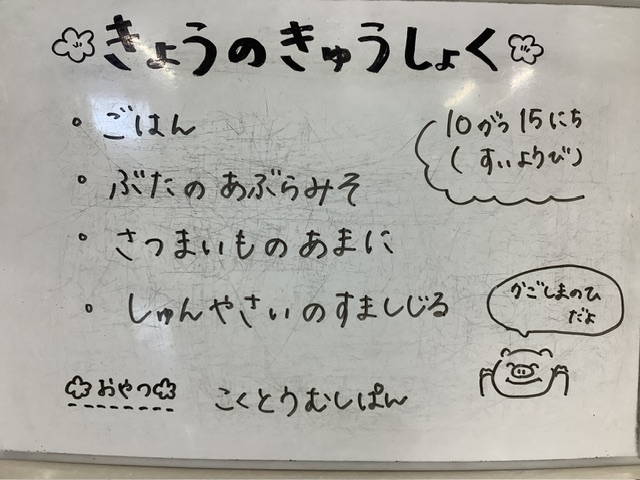 きょうのきゅうしょく
10がつ15にち
(すいようび)
・ごはん
・ぶたのあぶらみそ
・さつまいものあまに
・しゅんやさいのすましじる
かごしまのひ
だよ
おやつ こくとうむしぱん